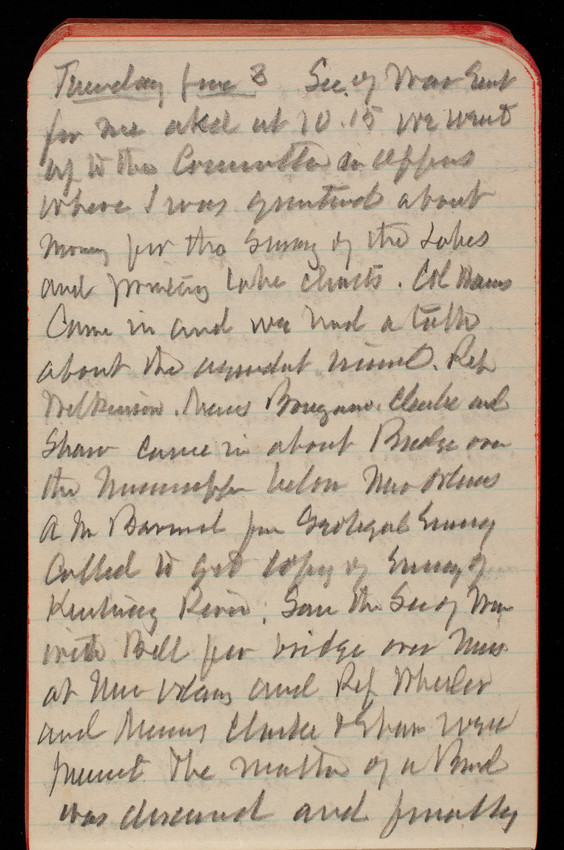 Tuesday June 3 Sec. of War Sent
for me and at 10.15 we went
up to the Committee on Appns
where I was questioned about
money for the Survey of the Lakes
and printing Lake charts. Col
Came in and we had a talk
about the . Rep
Wilkinson. Messrs , Clarke and
Shaw came in about Bridge over
the Mississippi below New Orleans
A M from Geological Survey
Called to get copy of Survey of
Kentucky River. Saw the Sec of War
with Bill for bridge over Miss
at New Orleans and Rep Wheeler
and Messrs Clarke & Shaw were
present. The matter of a Board
was discussed and finally